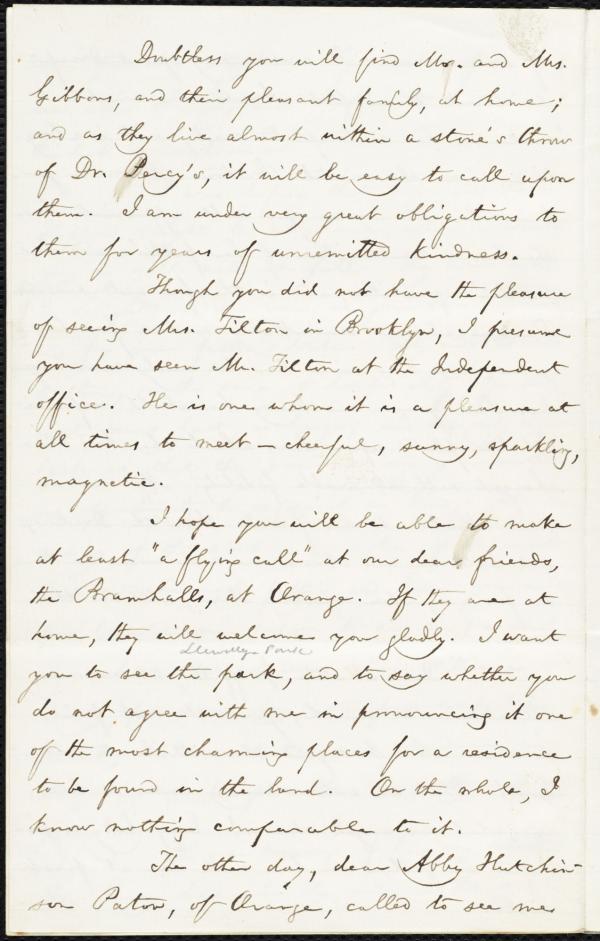 Doubtless you will find Mr. and Mrs.
Gibbons, and their pleasant family, at home;
and as they live almost within a stone's throw
of Dr. Percy's, it will be easy to call upon
them. I am under very great obligations to
them for years of unremitted kindness.
Though you did not have the pleasure
of seeing Mrs. Tilton in Brooklyn, I presume
you have seen Mr. Tilton at the Independent
office. He is one whom it is a pleasure at
all times to meet — cheerful, sunny, sparkling,
magnetic.
I hope you will be able to make
at least "a flying call" at our dear friends,
the Bramhalls, at Orange. If they are at
home, they will welcome you gladly. I want
Llewellyn Park
you to see the park, and to say whether you
do not agree with me in pronouncing it one
of the most charming places for a residence
to be found in the land. On the whole, I
know nothing comparable to it.
The other day, dear Abby Hutchin-
son Paton, of Orange, called to see me